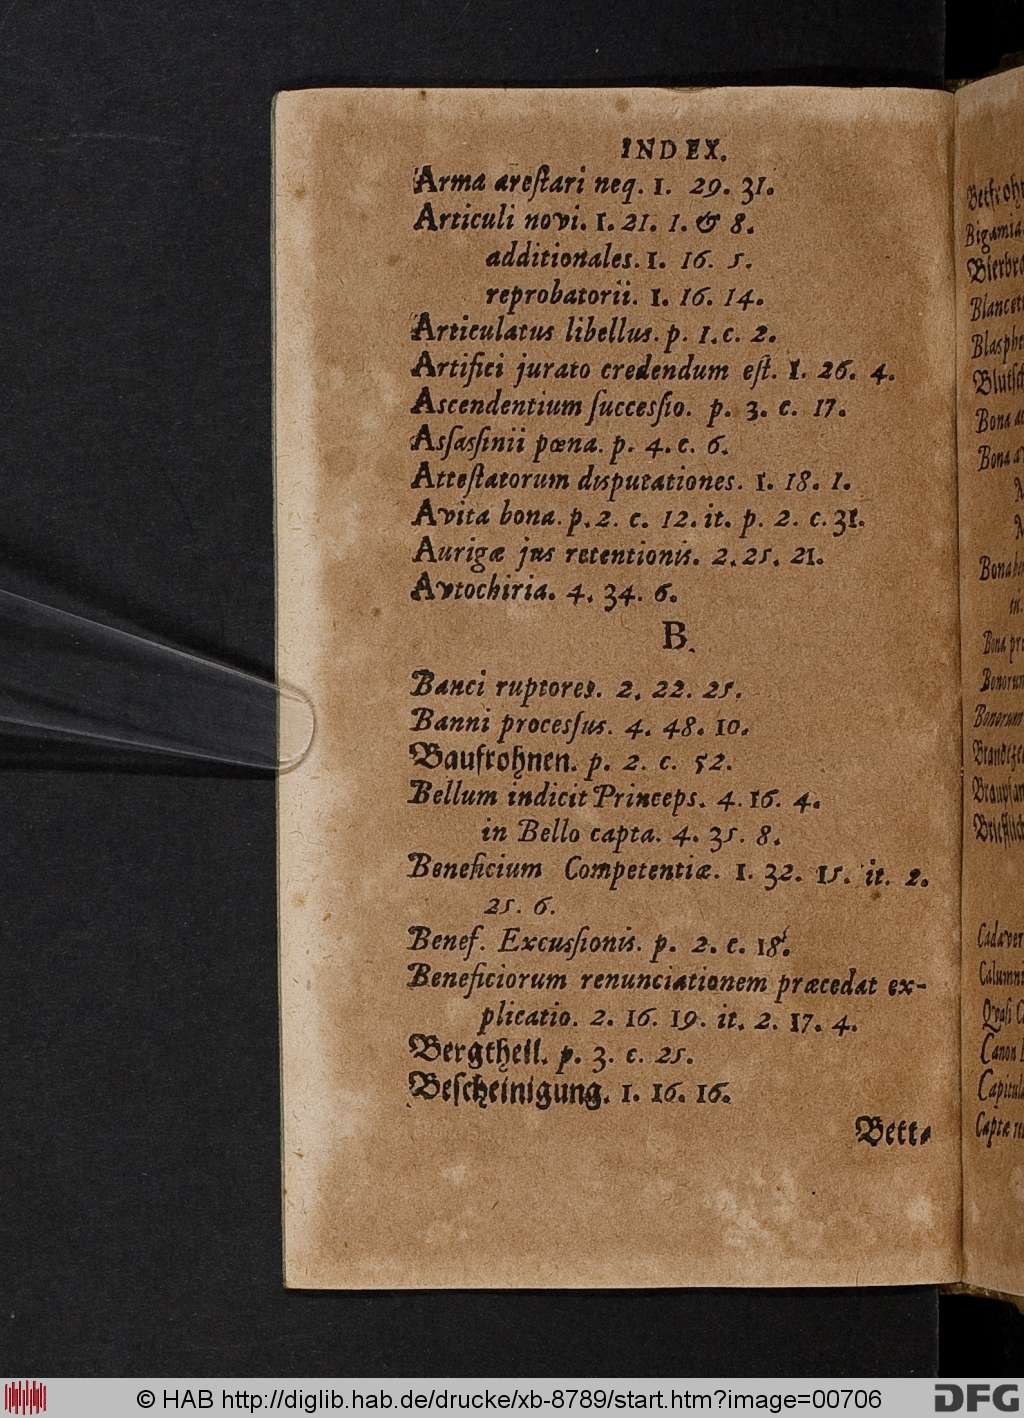 INDEX.
Arma areſtari neq. 1. 29. 31.
Articuli novi. 1. 21. 1. & 8.
additionales. 1. 16. 5.
reprobatorii. 1. 16. 14.
Articulatus libellus. p. 1. c. 2.
Artifici jurato credendum eſt. 1. 26. 4.
Ascendentium ſucceſſio. p. 3. c. 17.
Aſsaſſinii pœna. p. 4. c. 6.
Atteſtatorum disputationes. 1. 18. 1.
Avita bona. p. 2. c. 12. it. p. 2. c. 31.
Aurigæ jus retentionis. 2. 25. 21.
Avtochiria. 4. 34. 6.
B.
Banci ruptores. 2. 22. 25.
Banni proceſsus. 4. 48. 10.
Baufrohnen. p. 2. c. 52.
Bellum indicit Princeps. 4. 16. 4.
in Bello capta. 4. 35. 8.
Beneficium Competentiæ. 1. 32. 15. it. 2.
25. 6.
Benef. Excuſſionis. p. 2. c. 18.
Beneficiorum renunciationem præcedat ex-
plicatio. 2. 16. 19. it. 2. 17. 4.
Bergtheil. p. 3. c. 25.
Beſcheinigung. 1. 16. 16.
Bett⸗
Bona
Bona
Bona
in
Bona
Canon
© HAB http://diglib.hab.de/drucke/xb-8789/start.htm?image=00706
DFG